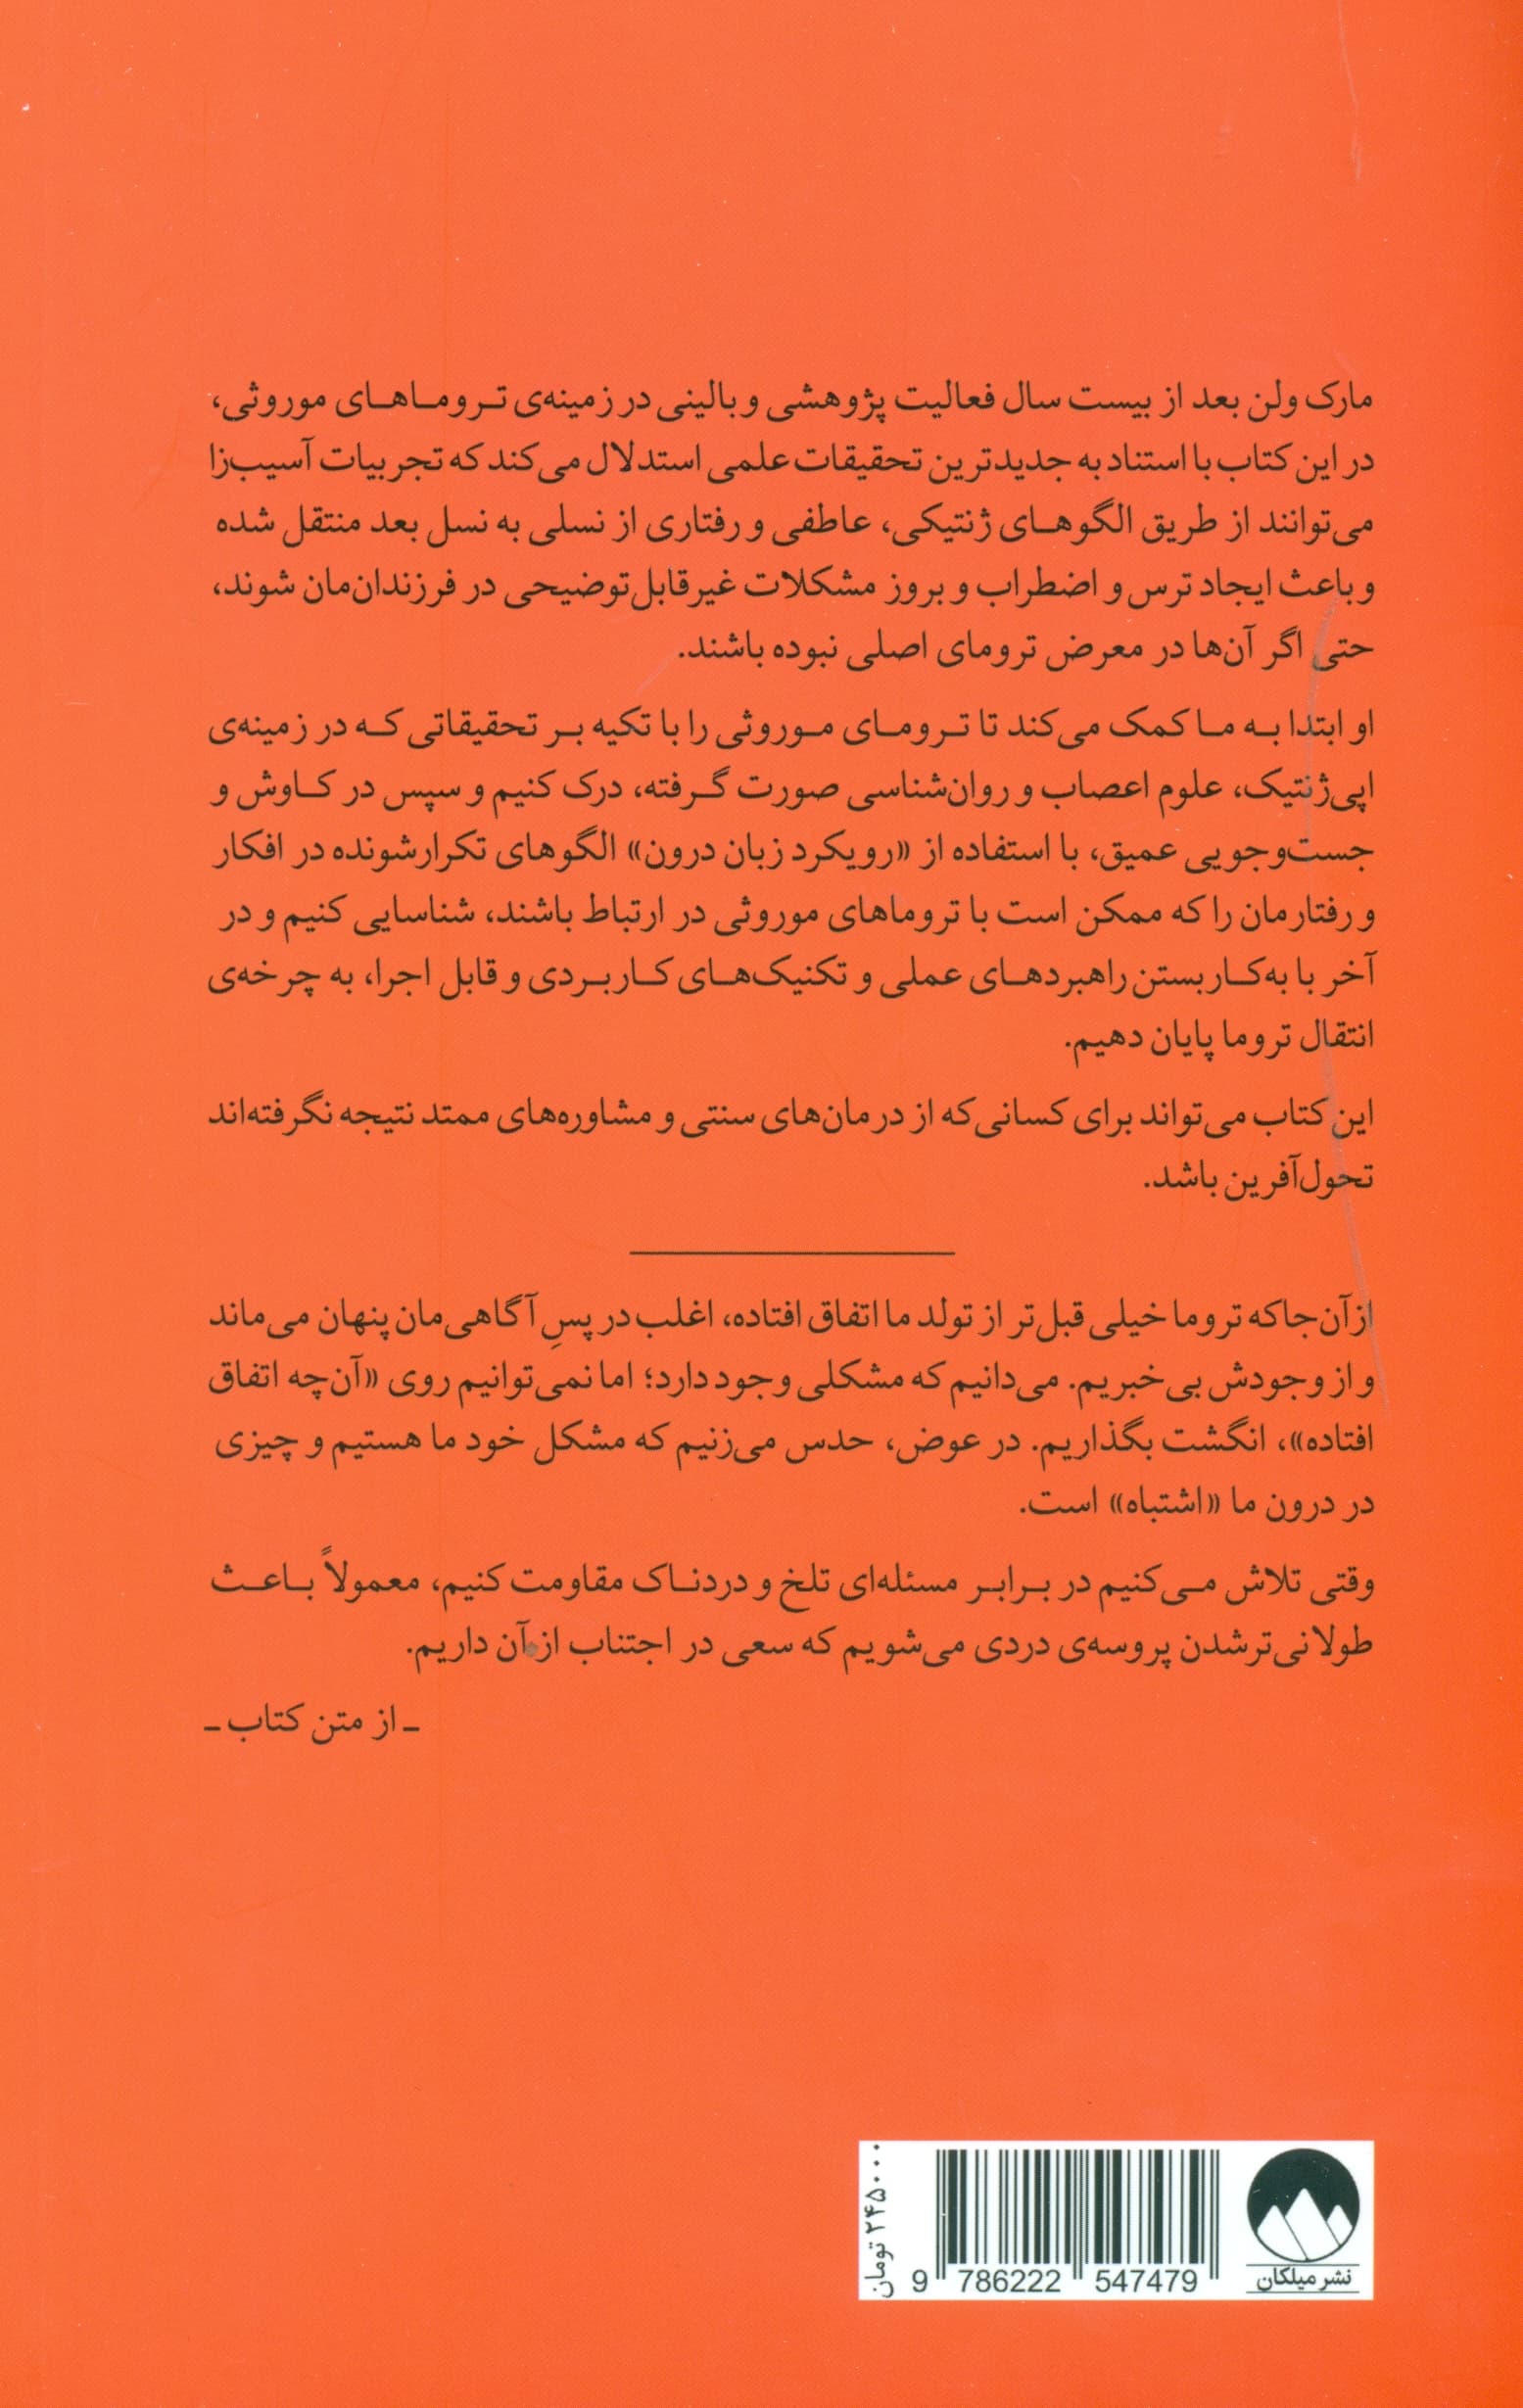 مارک ولن بعد از بیست سال فعالیت پژوهشی و بالینی در زمینه‌ی تروماهای موروثی،
در این کتاب با استناد به جدیدترین تحقیقات علمی استدلال می‌کند که تجربیات آسیب‌زا
می‌توانند از طریق الگوهای ژنتیکی، عاطفی و رفتاری از نسلی به نسل بعد منتقل شده
و باعث ایجاد ترس و اضطراب و بروز مشکلات غیرقابل‌توضیحی در فرزندان‌مان شوند،
حتی اگر آن‌ها در معرض ترومای اصلی نبوده باشند.
او ابتدا به ما کمک می‌کند تا ترومای موروثی را با تکیه بر تحقیقاتی که در زمینه‌ی
اپی‌ژنتیک، علوم اعصاب و روان‌شناسی صورت گرفته، درک کنیم و سپس در کاوش و
جست‌وجویی عمیق، با استفاده از «رویکرد زبان درون» الگوهای تکرارشونده در افکار
و رفتارمان را که ممکن است با تروماهای موروثی در ارتباط باشند، شناسایی کنیم و در
آخر با به‌کاربستن راهبردهای عملی و تکنیک‌های کاربردی و قابل اجرا، به چرخه‌ی
انتقال تروما پایان دهیم.
این کتاب می‌تواند برای کسانی‌که از درمان‌های سنتی و مشاوره‌های ممتد نتیجه نگرفته‌اند
تحول‌آفرین باشد.
ازآن‌جاکه تروما خیلی قبل‌تر از تولد ما اتفاق افتاده، اغلب در پسِ آگاهی‌مان پنهان می‌ماند
و از وجودش بی‌خبریم. می‌دانیم که مشکلی وجود دارد؛ اما نمی‌توانیم روی «آن‌چه اتفاق
افتاده»، انگشت بگذاریم. در عوض، حدس می‌زنیم که مشکل خود ما هستیم و چیزی
در درون ما «اشتباه» است.
وقتی تلاش می‌کنیم در برابر مسئله‌ای تلخ و دردناک مقاومت کنیم، معمولاً باعث
طولانی‌ترشدن پروسه‌ی دردی می‌شویم که سعی در اجتناب از آن داریم.
ـ از متن کتاب ـ
۲۴۵۰۰۰ تومان
9 786222 547479
نشر میلکان